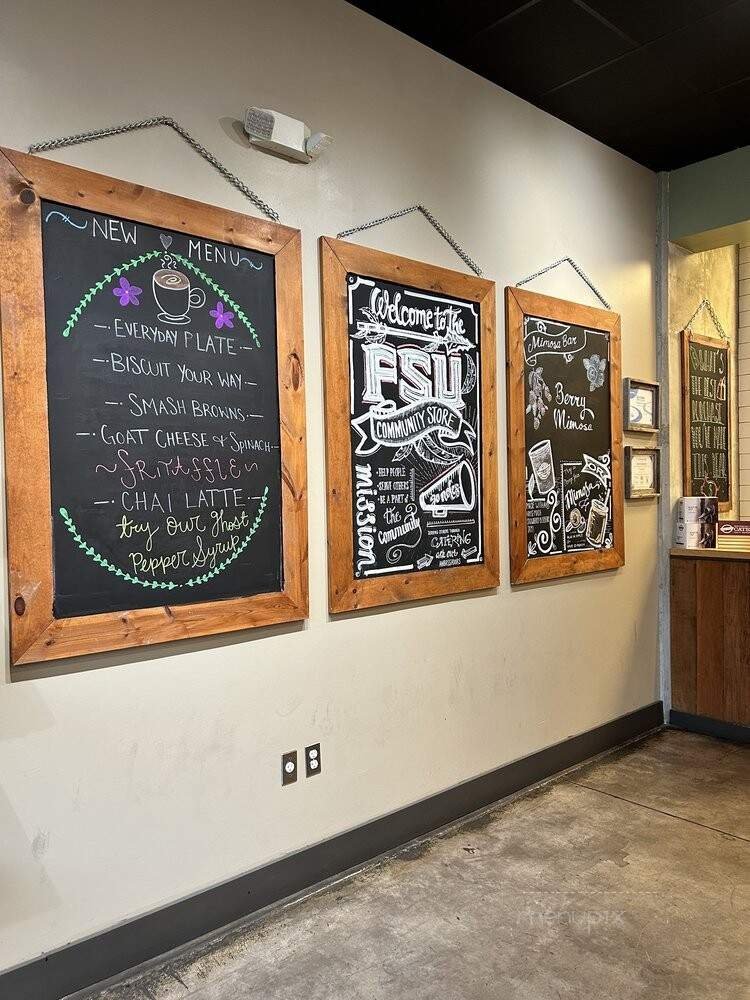 NEW MENU
EVERYDAY PLATE
BISCUIT YOUR WAY
SMASH BROWNS
GOAT CHEESE & SPINACH
FRITAFFLE
CHAI LATTE
try our Ghost
Pepper Syrup
Welcome to the
FSU
COMMUNITY STORE
mission
HELP PEOPLE
SERVE OTHERS
BE A PART of
the
community
CATERING
Mimosa Bar
Berry
Mimosa
Mimosa
WHAT'S
THE BEST
PURCHASE
YOU'VE MADE
menupix